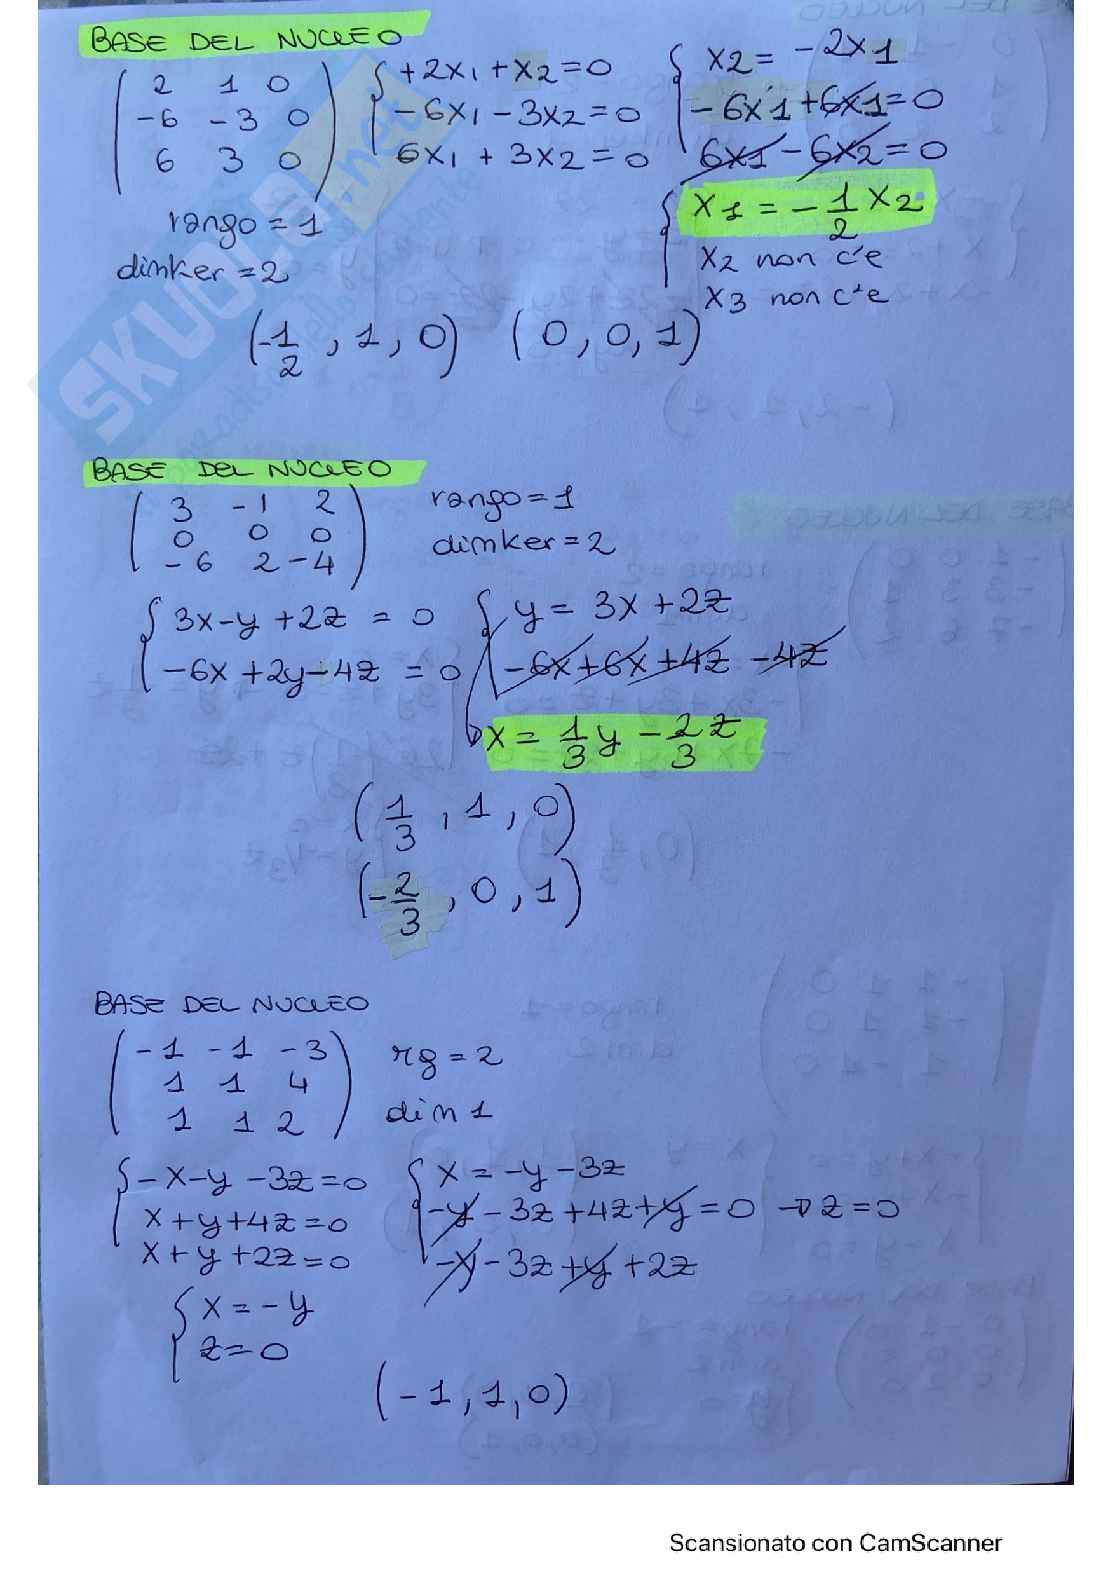 BASE DEL NUCLEO
2 1 0
-6 -3 0
6 3 0
+2x1 + x2 = 0
-6x1 - 3x2 = 0
6x1 + 3x2 = 0
x2 = -2x1
-6x1 + 6x1 = 0
6x1 - 6x2 = 0
rango = 1
dimker = 2
x1 = -1/2 x2
x2 non c'e
x3 non c'e
(-1/2, 1, 0) (0, 0, 1)
SKUOLA.net
BASE DEL NUCLEO
3 -1 2
0 0 0
-6 2 -4
rango = 1
dimker = 2
3x - y + 2z = 0
-6x + 2y - 4z = 0
y = 3x + 2z
-6x + 6x + 4z - 4z
x = 1/3 y - 2/3 z
(1/3, 1, 0)
(-2/3, 0, 1)
BASE DEL NUCLEO
-1 -1 -3
1 1 4
1 1 2
rg = 2
dim 1
-x - y - 3z = 0
x + y + 4z = 0
x + y + 2z = 0
x = -y - 3z
-y - 3z + 4z + y = 0 → z = 0
-y - 3z + y + 2z
x = -y
z = 0
(-1, 1, 0)
Scansionato con CamScanner